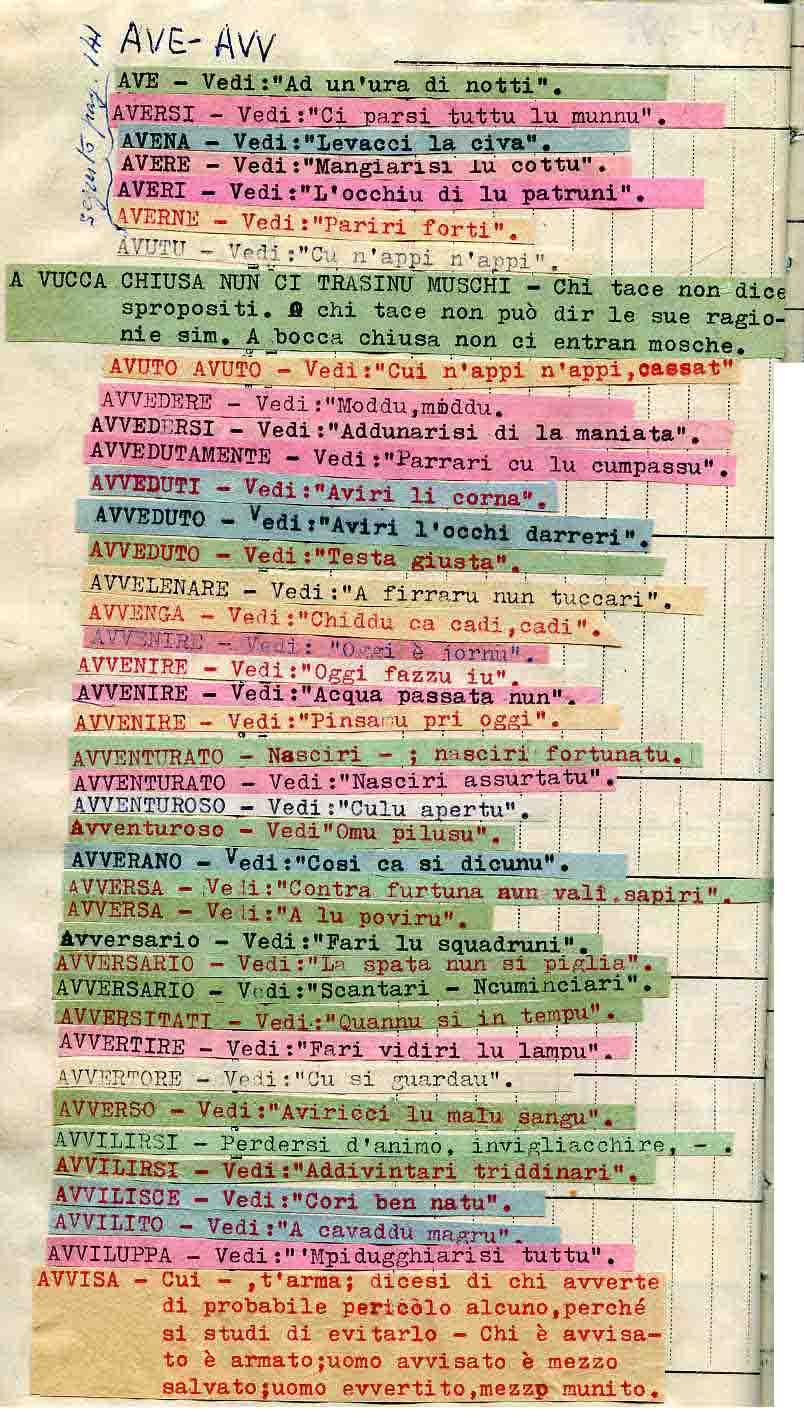 AVE-AVV
seguito pag. 141
AVE - Vedi:"Ad un'ura di notti".
AVERSI - Vedi:"Ci parsi tuttu lu munnu".
AVENA - Vedi:"Levacci la civa".
AVERE - Vedi:"Mangiarisi lu cottu".
AVERI - Vedi:"L'occhiu di lu patruni".
AVERNE - Vedi:"Pariri forti".
AVUTU - Vedi:"Cu n'appi n'appi".
A VUCCA CHIUSA NUN CI TRASINU MUSCHI - Chi tace non dice
spropositi. O chi tace non può dir le sue ragio-
nie sim. A bocca chiusa non ci entran mosche.
AVUTO AVUTO - Vedi:"Cui n'appi n'appi,cassat"
AVVEDERE - Vedi:"Moddu,moddu.
AVVEDERSI - Vedi:"Addunarisi di la maniata".
AVVEDUTAMENTE - Vedi:"Parrari cu lu cumpassu".
AVVEDUTI - Vedi:"Aviri li corna".
AVVEDUTO - Vedi:"Aviri l'occhi darreri".
AVVEDUTO - Vedi:"Testa giusta".
AVVELENARE - Vedi:"A firraru nun tuccari".
AVVENGA - Vedi:"Chiddu ca cadi,cadi".
AVVENIRE - Vedi: "Oggi è jornu".
AVVENIRE - Vedi:"Oggi fazzu iu".
AVVENIRE - Vedi:"Acqua passata nun".
AVVENIRE - Vedi:"Pinsamu pri oggi".
AVVENTURATO - Nasciri - ; nasciri fortunatu.
AVVENTURATO - Vedi:"Nasciri assurtatu".
AVVENTUROSO - Vedi:"Culu apertu".
Avventuroso - Vedi"Omu pilusu".
AVVERANO - Vedi:"Cosi ca si dicunu".
AVVERSA - Vedi:"Contra furtuna nun vali sapiri".
AVVERSA - Vedi:"A lu poviru".
Avversario - Vedi:"Fari lu squadruni".
AVVERSARIO - Vedi:"La spata nun si piglia".
AVVERSARIO - Vedi:"Scantari - Ncuminciari".
AVVERSITATI - Vedi:"Quannu si in tempu".
AVVERTIRE - Vedi:"Fari vidiri lu lampu".
AVVERTORE - Vedi:"Cu si guardau".
AVVERSO - Vedi:"Aviricci lu malu sangu".
AVVILIRSI - Perdersi d'animo, invigliacchire, - .
AVVILIRSI - Vedi:"Addivintari triddinari".
AVVILISCE - Vedi:"Cori ben natu".
AVVILITO - Vedi:"A cavaddu magru".
AVVILUPPA - Vedi:"'Mpidugghiarisi tuttu".
AVVISA - Cui - ,t'arma; dicesi di chi avverte
di probabile pericolo alcuno,perché
si studi di evitarlo - Chi è avvisa-
to è armato;uomo avvisato è mezzo
salvato;uomo evvertito,mezzo munito.